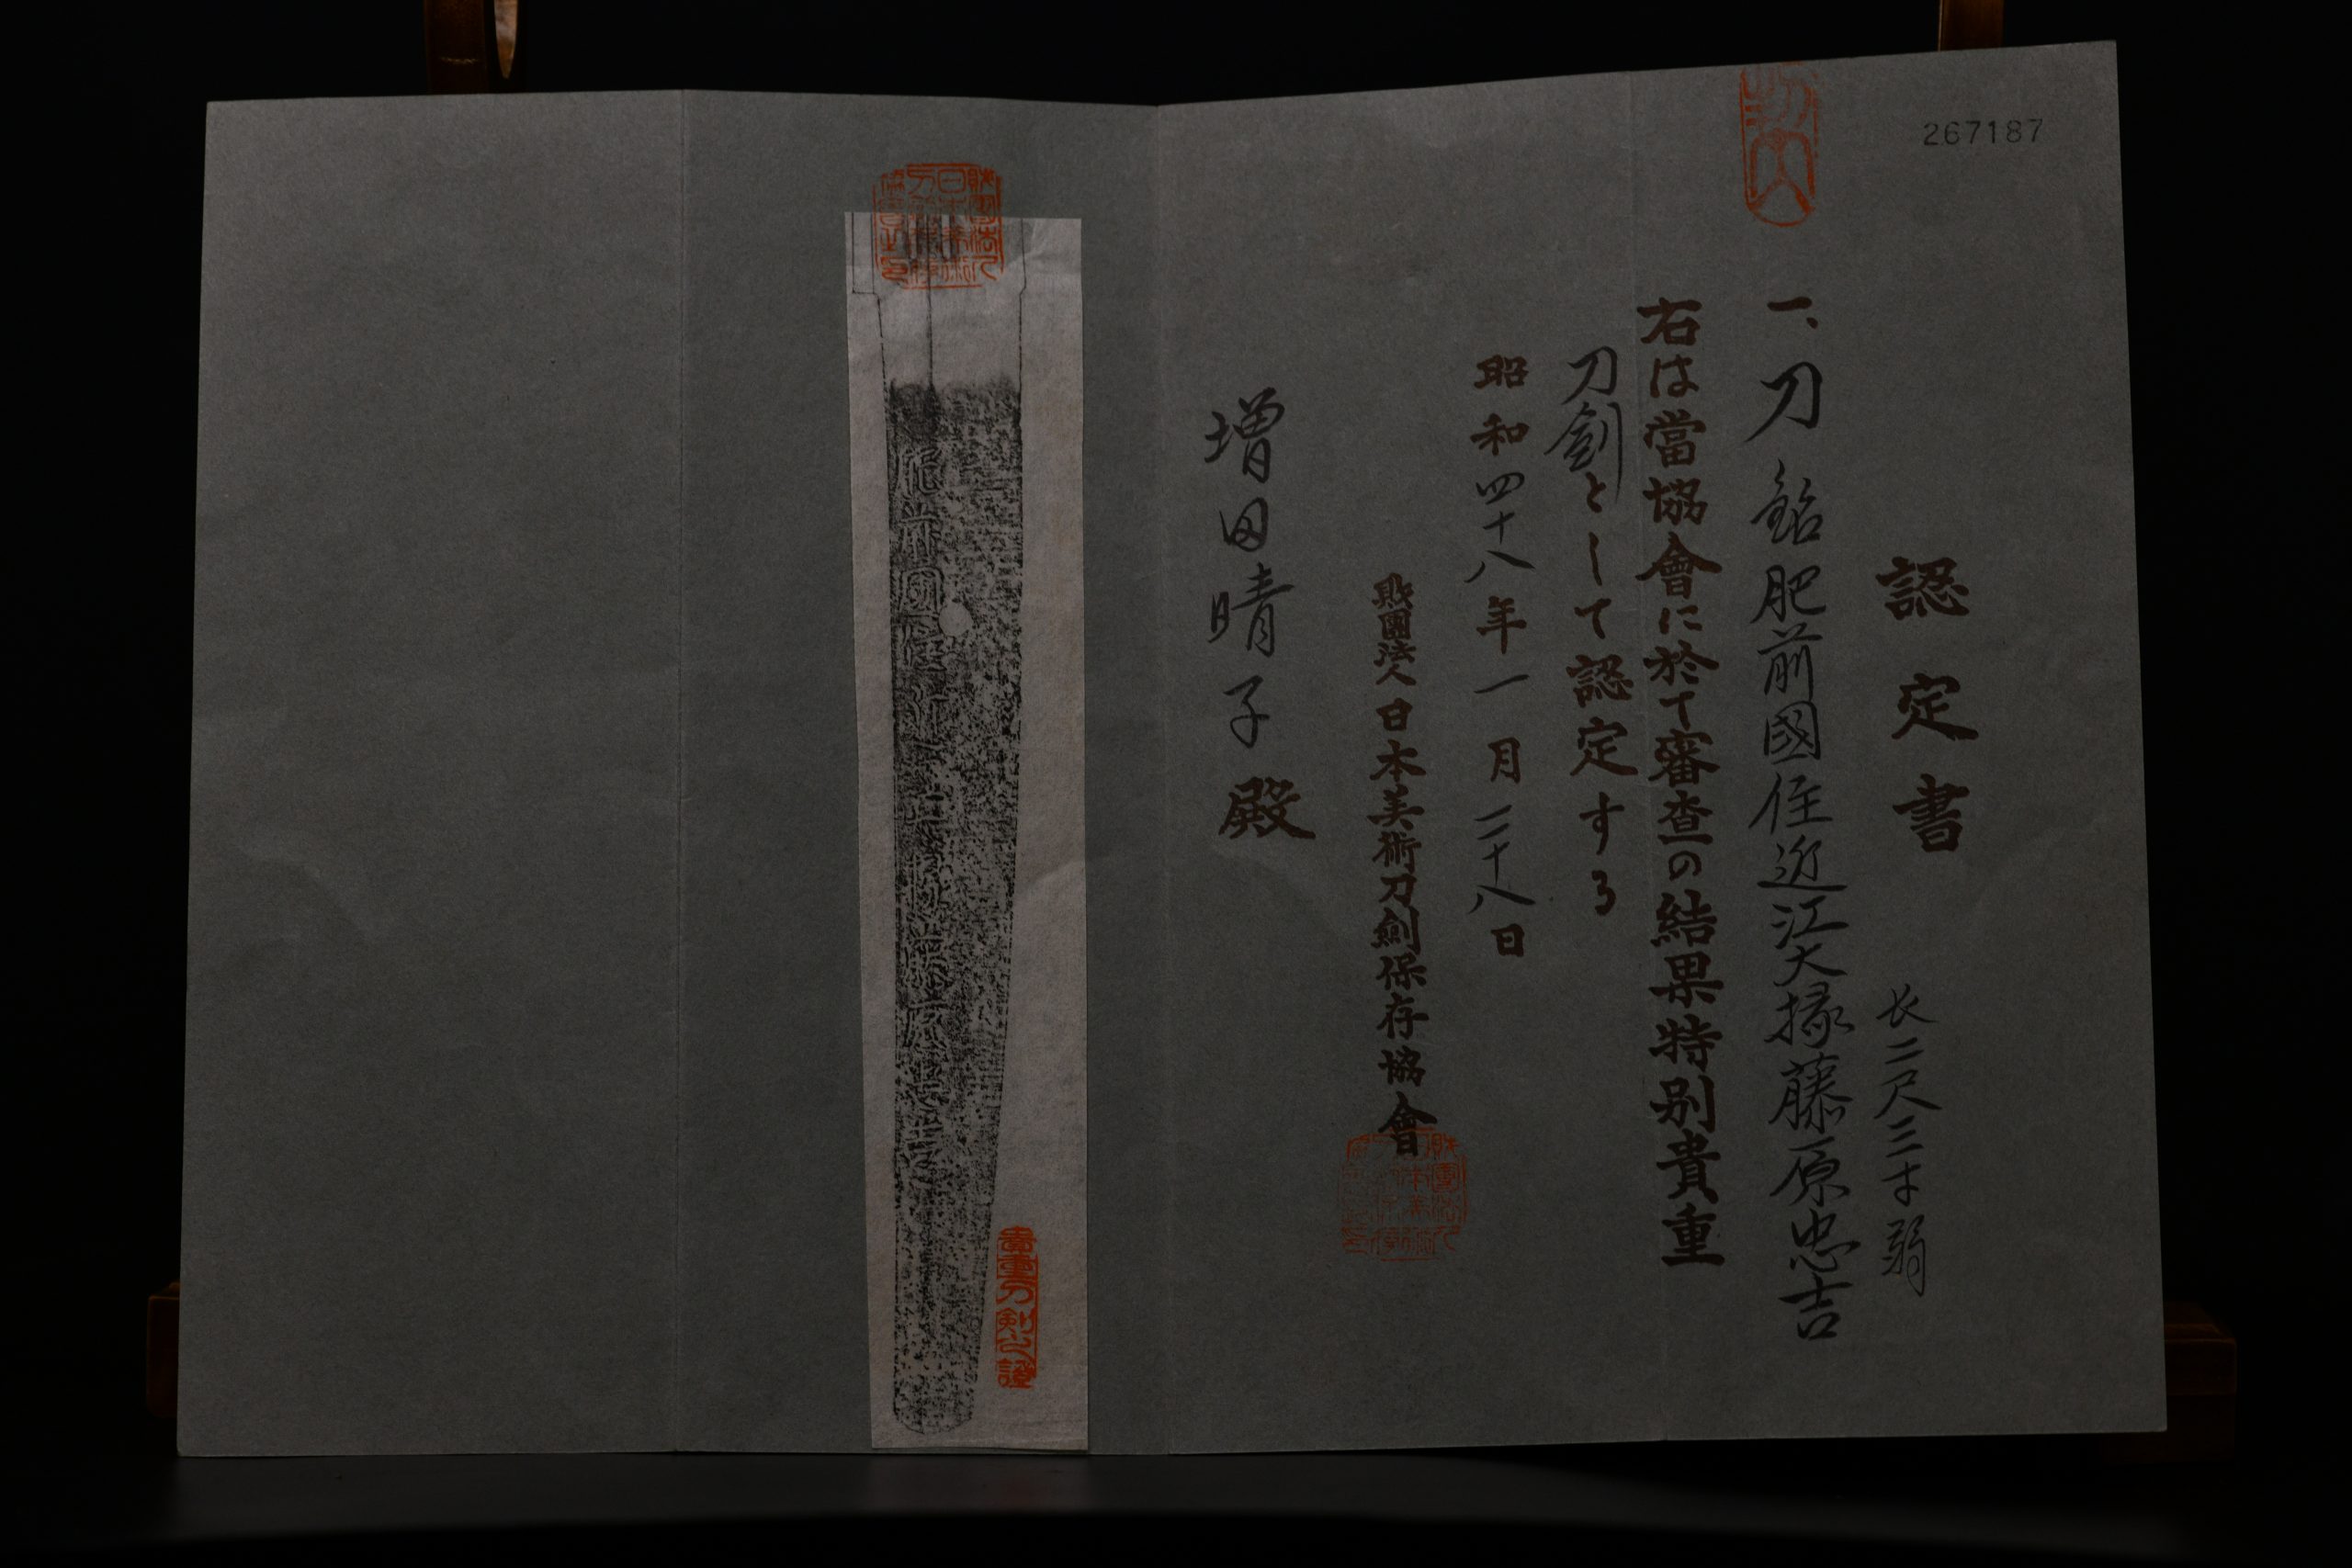 267187
認定書
長二尺三寸弱
一、刀 銘 肥前國住近江大掾藤原忠吉
右は當協會に於て審査の結果特別貴重
刀劍として認定する
昭和四十八年一月二十八日
財團法人日本美術刀劍保存協會
増田晴子殿
肥前國住近江大掾藤原忠吉
貴重刀剣之證